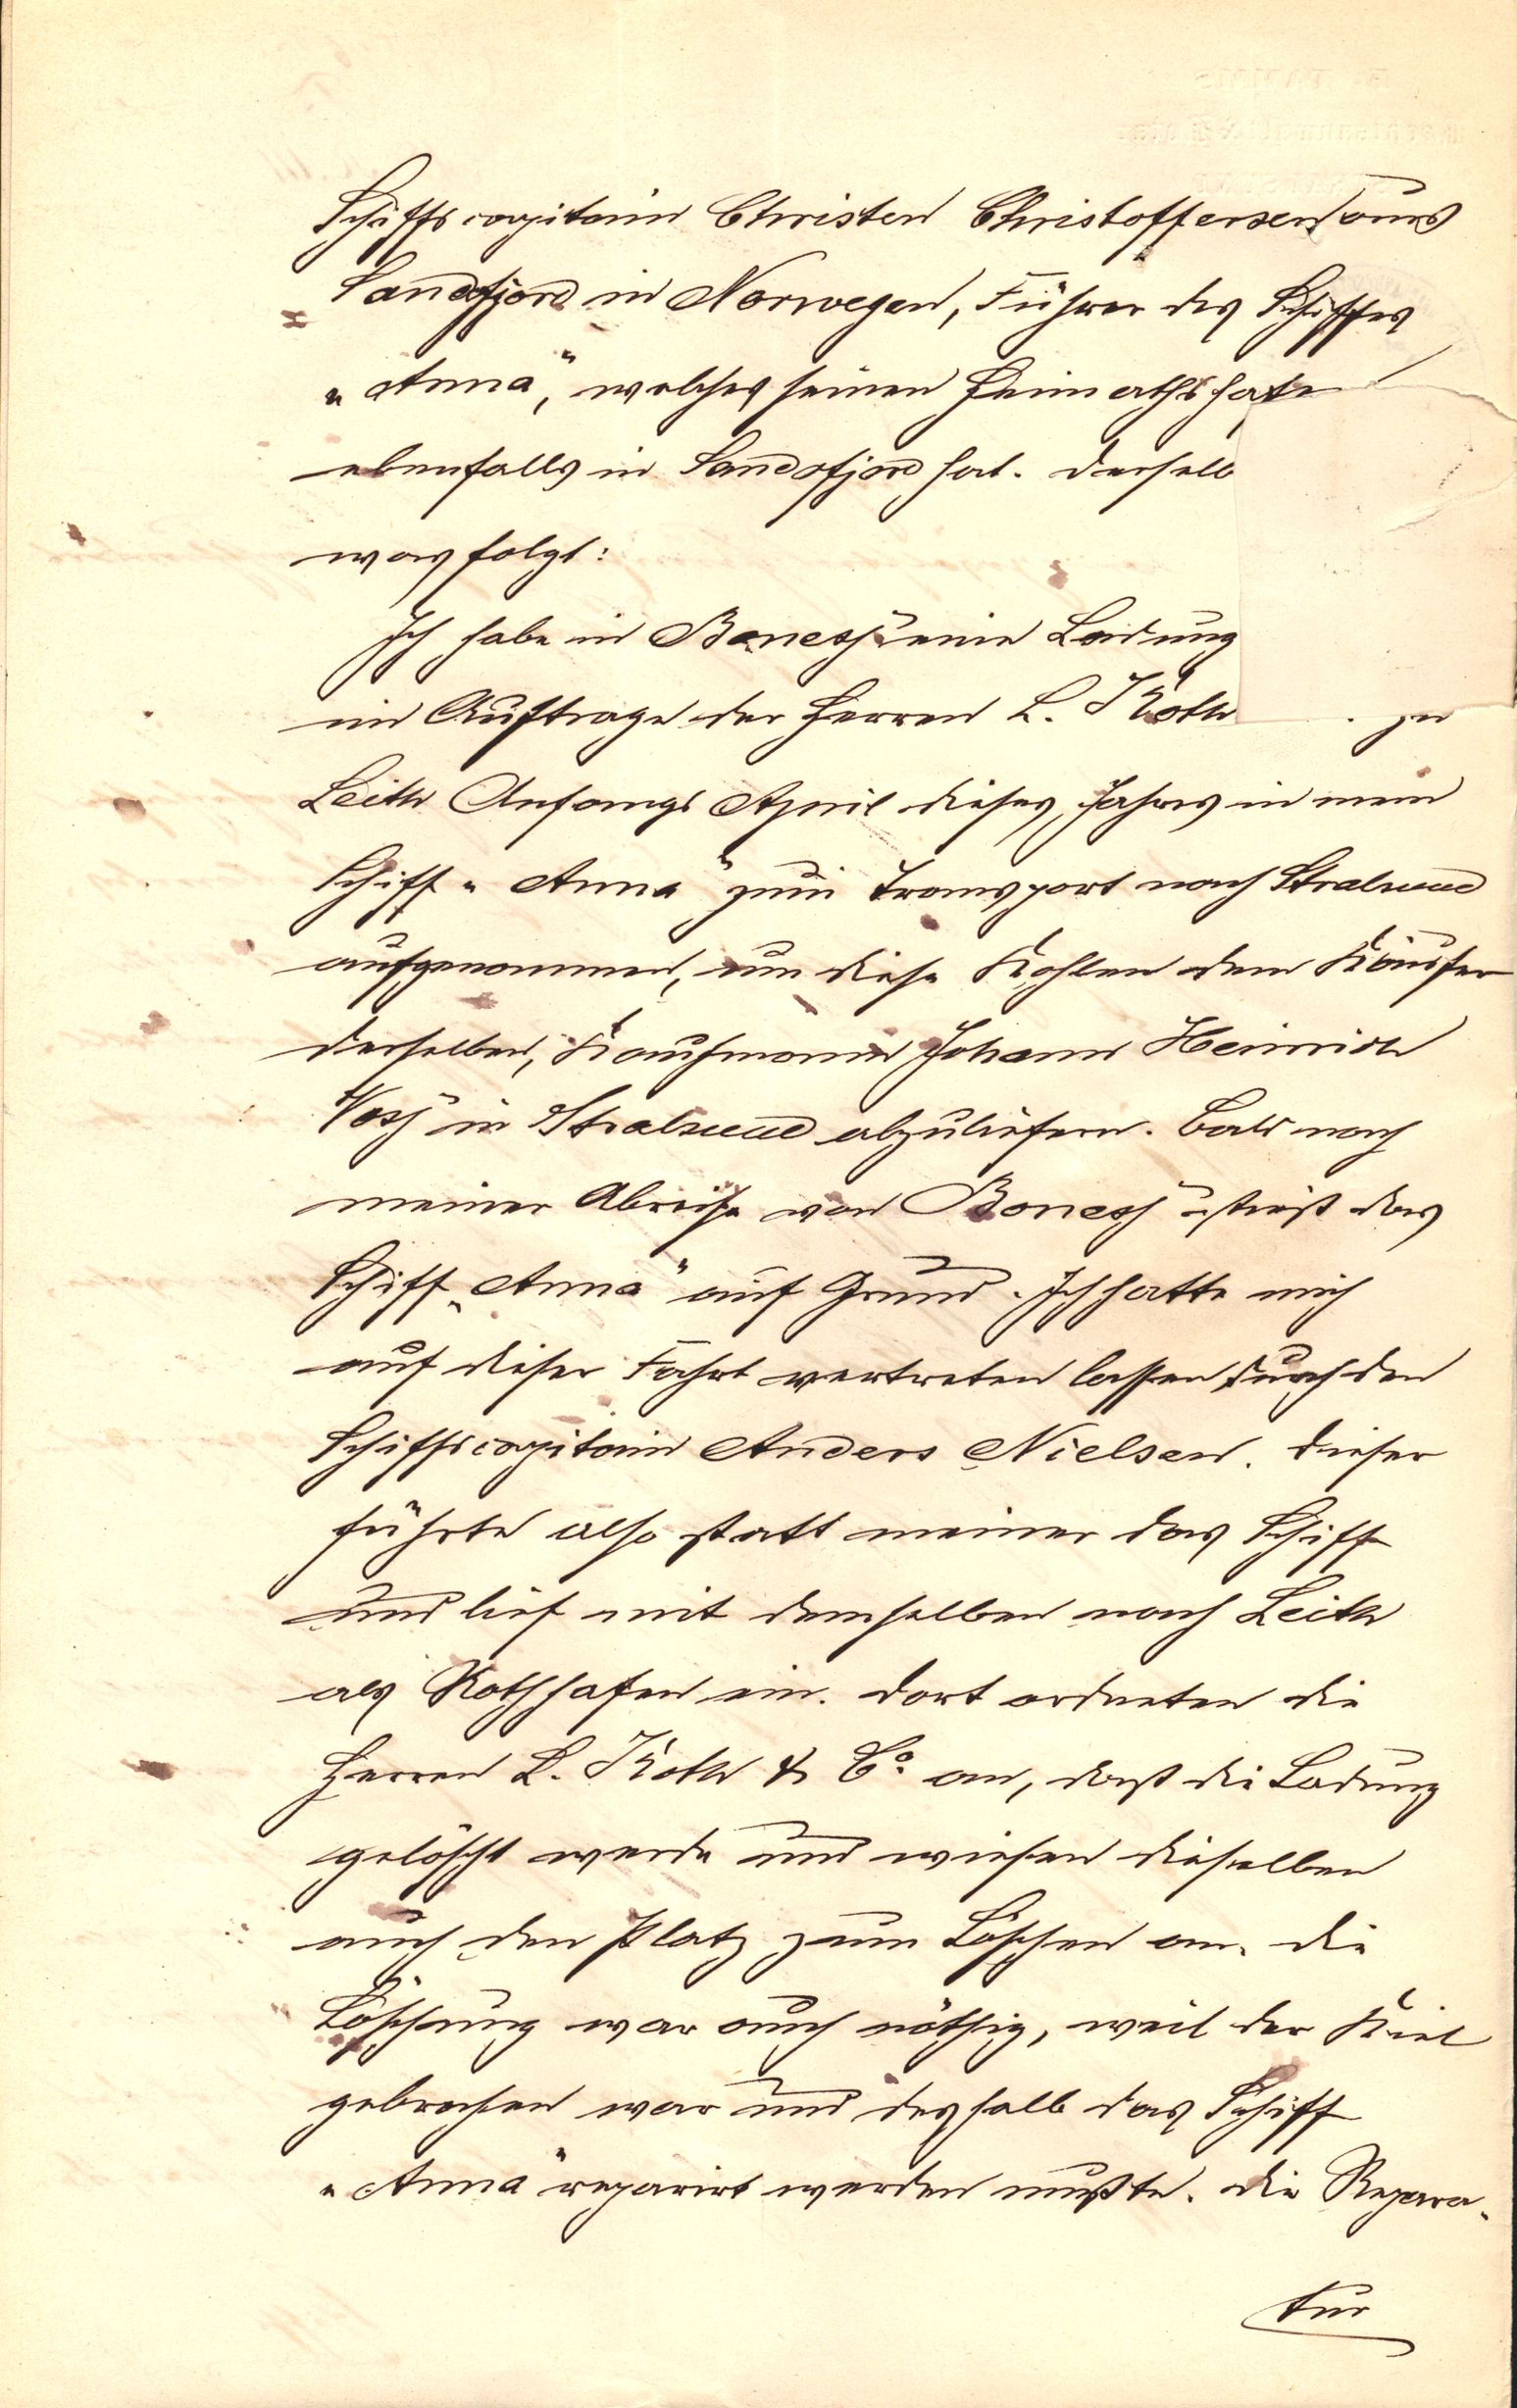 Schiffscapitain Christen Christoffersen aus
Sandefjord in Norwegen, Führer des Schiffes
„Anna“, welches seinen Heimathshafe
ebenfalls in Sandefjord hat. Derselb
was folgt:
Ich habe in Boness eine Ladung
im Auftrage der Herren L. Koth zu
Leith Anfangs April dieses Jahres in mein
Schiff „Anna“ zum Transport nach Stralsund
aufgenommen, um diese Kohlen dem Käufer
derselben, Kaufmann Johann Heinrich
Voss in Stralsund abzuliefern. Bald nach
meiner Abreise von Boness stieß das
Schiff „Anna“ auf Grund. Ich hatte mich
auf dieser Fahrt vertreten lassen durch den
Schiffscapitain Anders Nielsen. Dieser
führte also statt meiner das Schiff
und lief mit demselben nach Leith
als Nothhafen ein. Dort ordneten die
Herren L. Koth & Co. an, daß die Ladung
gelöscht werde und wiesen dieselben
auch den Platz zum Löschen an. Die
Löschung war auch nöthig, weil der Kiel
gebrochen war und deshalb das Schiff
„Anna“ reparirt werden mußte. Die Repara-
tur